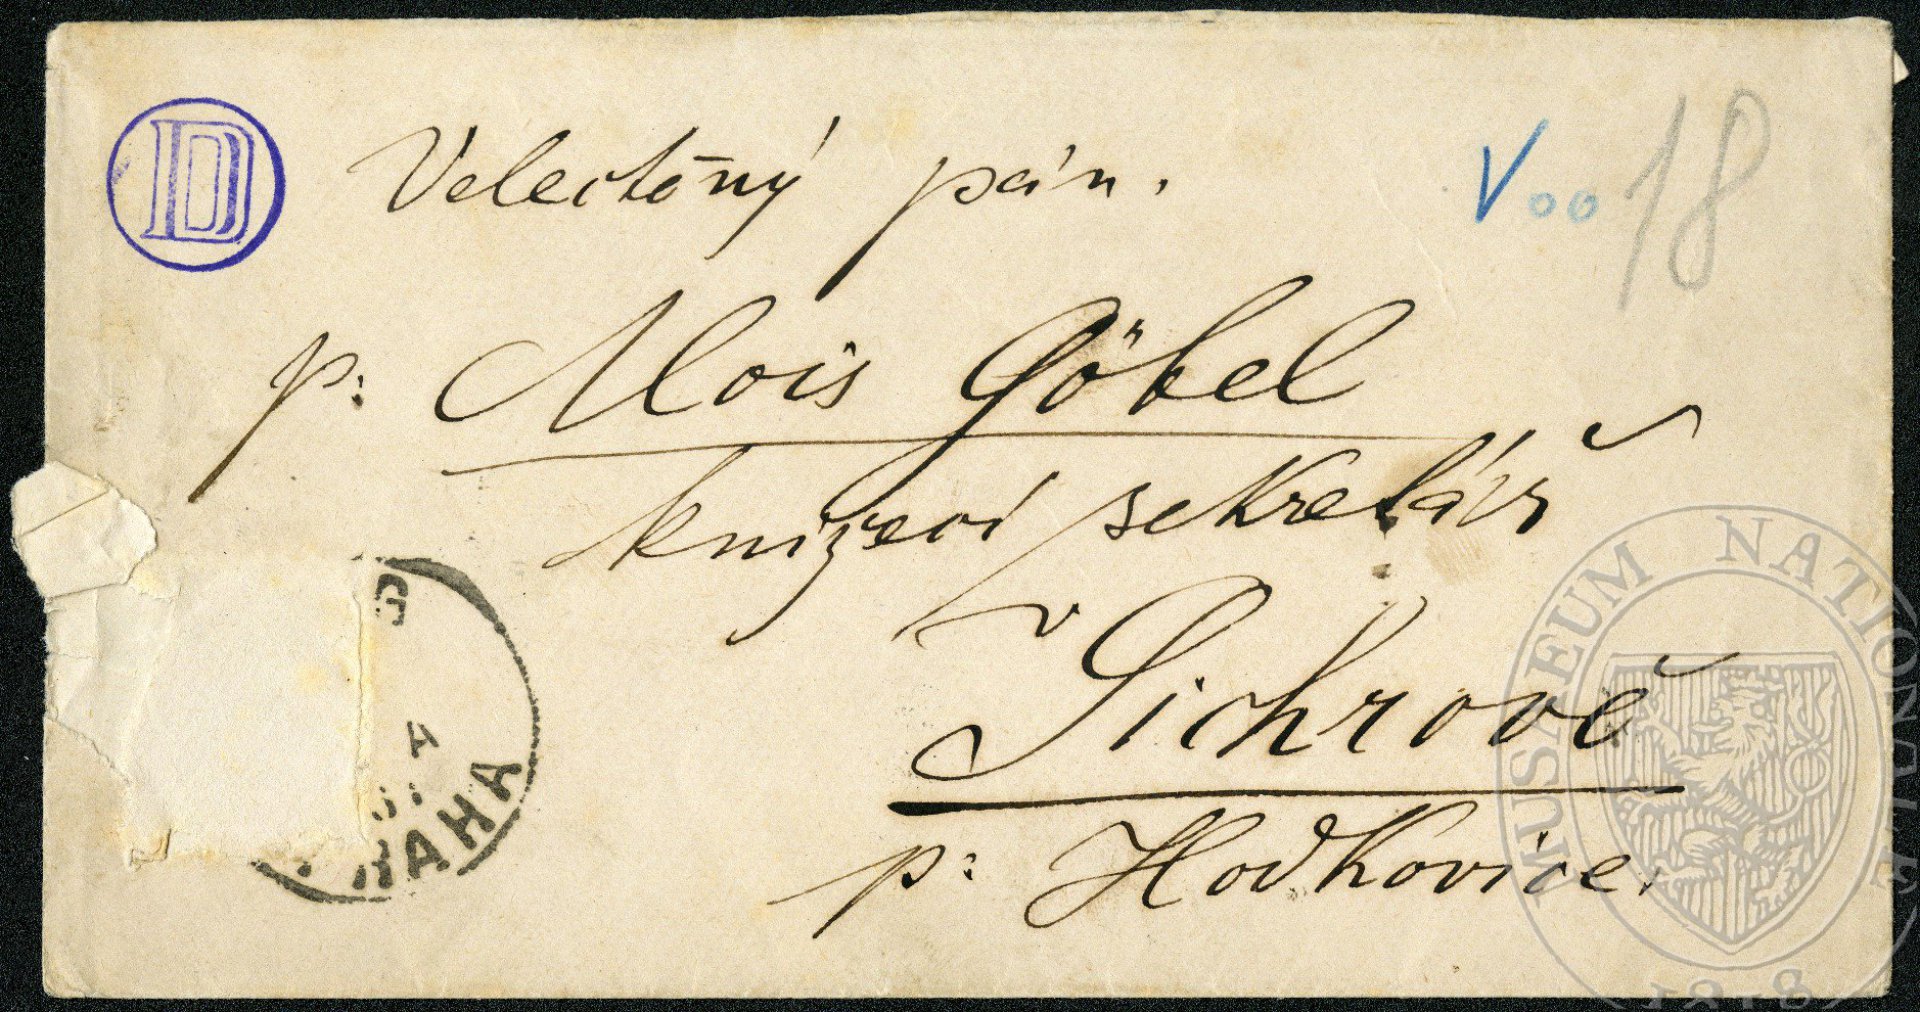 D
Velectěný pán.
V..oo 18
p: Alois Göbel
knížecí sekretář
v
Sichrově
p: Hodkovice.
PRAHA
MUSAEUM NATIONALE
1818